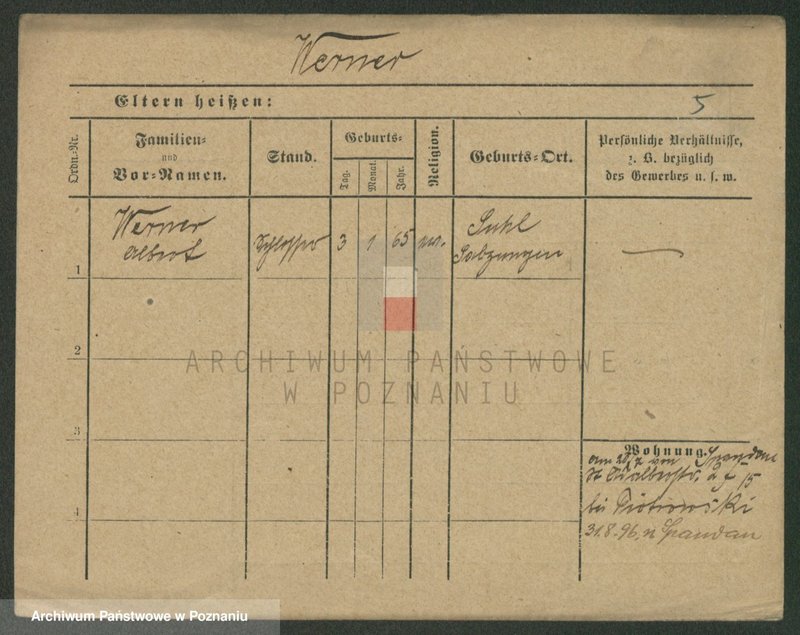 Werner
Eltern heißen:
5
Ordn.-Nr.
Familien-
und
Vor-Namen.
Stand.
Geburts-
Tag.
Monat.
Jahr.
Religion.
Geburts-Ort.
Persönliche Verhältnisse,
z. B. bezüglich
des Gewerbes u. s. w.
1
Werner
Albert
Schlosser
3
1
65
ev.
Suhl
Salzungen
—
2
ARCHIWUM PAŃSTWOWE
W POZNANIU
3
4
Wohnung.
am 20/7 von Spandau
St Adalbertstr. 15
bei Piotrowski
31.8.96, n Spandau
Archiwum Państwowe w Poznaniu